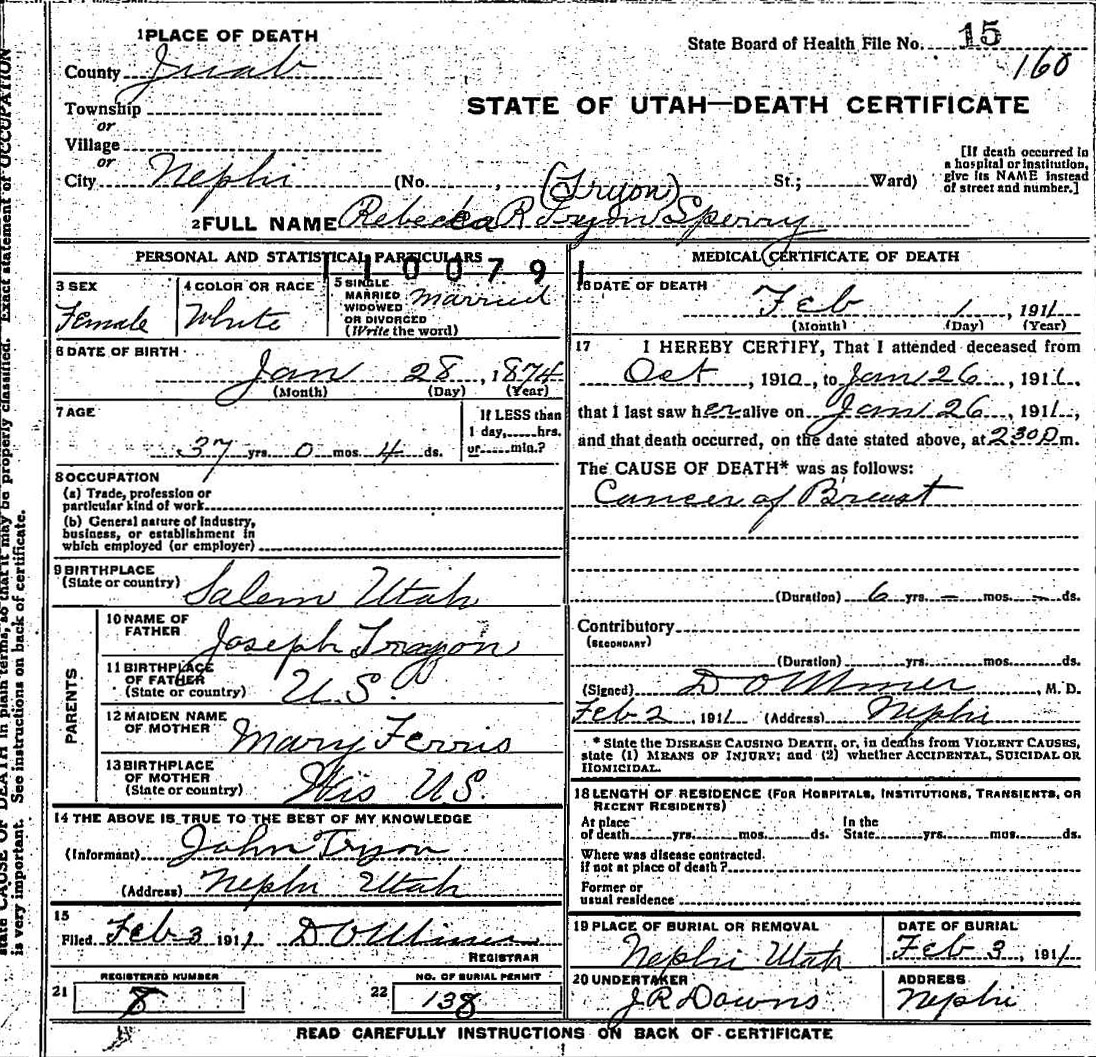 1 PLACE OF DEATH
State Board of Health File No. 15
160
County Juab
Township
or
Village
or
City Nephi (No. , St.; Ward)
STATE OF UTAH—DEATH CERTIFICATE
[If death occurred in
a hospital or institution,
give its NAME instead
of street and number.]
(Tryon)
2 FULL NAME Rebecca R Tryon Sperry
PERSONAL AND STATISTICAL PARTICULARS
1100791
3 SEX
Female
4 COLOR OR RACE
White
5 SINGLE
MARRIED
WIDOWED
OR DIVORCED
(Write the word)
Married
6 DATE OF BIRTH
Jan 28, 1874
(Month) (Day) (Year)
7 AGE
37 yrs. 0 mos. 4 ds.
If LESS than
1 day, hrs.
or min.?
8 OCCUPATION
(a) Trade, profession or
particular kind of work
(b) General nature of industry,
business, or establishment in
which employed (or employer)
9 BIRTHPLACE
(State or country) Salem Utah
PARENTS
10 NAME OF
FATHER Joseph Trayon
11 BIRTHPLACE
OF FATHER
(State or country) U.S.
12 MAIDEN NAME
OF MOTHER Mary Ferris
13 BIRTHPLACE
OF MOTHER
(State or country) U.S.
14 THE ABOVE IS TRUE TO THE BEST OF MY KNOWLEDGE
(Informant) John Tryon
(Address) Nephi Utah
15
Filed Feb 3 1911 D O
REGISTRAR
REGISTERED NUMBER
21 8
NO. OF BURIAL PERMIT
22 138
MEDICAL CERTIFICATE OF DEATH
16 DATE OF DEATH
Feb 1, 1911
(Month) (Day) (Year)
17 I HEREBY CERTIFY, That I attended deceased from
Oct, 1910, to Jan 26, 1911,
that I last saw her alive on Jan 26, 1911,
and that death occurred, on the date stated above, at 2 30 P m.
The CAUSE OF DEATH* was as follows:
Cancer of Breast
(Duration) 6 yrs. – mos. – ds.
Contributory
(SECONDARY)
(Duration) yrs. mos. ds.
(Signed) D O M.D.
Feb 2, 1911 (Address) Nephi
* State the DISEASE CAUSING DEATH, or, in deaths from VIOLENT CAUSES,
state (1) MEANS OF INJURY; and (2) whether ACCIDENTAL, SUICIDAL OR
HOMICIDAL.
18 LENGTH OF RESIDENCE (FOR HOSPITALS, INSTITUTIONS, TRANSIENTS, OR
RECENT RESIDENTS)
At place
of death yrs. mos. ds.
In the
State yrs. mos. ds.
Where was disease contracted
if not at place of death?
Former or
usual residence
19 PLACE OF BURIAL OR REMOVAL
Nephi Utah
DATE OF BURIAL
Feb 3, 1911
20 UNDERTAKER
J R Downs
ADDRESS
Nephi
READ CAREFULLY INSTRUCTIONS ON BACK OF CERTIFICATE
state CAUSE OF DEATH in plain terms, so that it may be properly classified. Exact statement of OCCUPATION
is very important. See instructions on back of certificate.